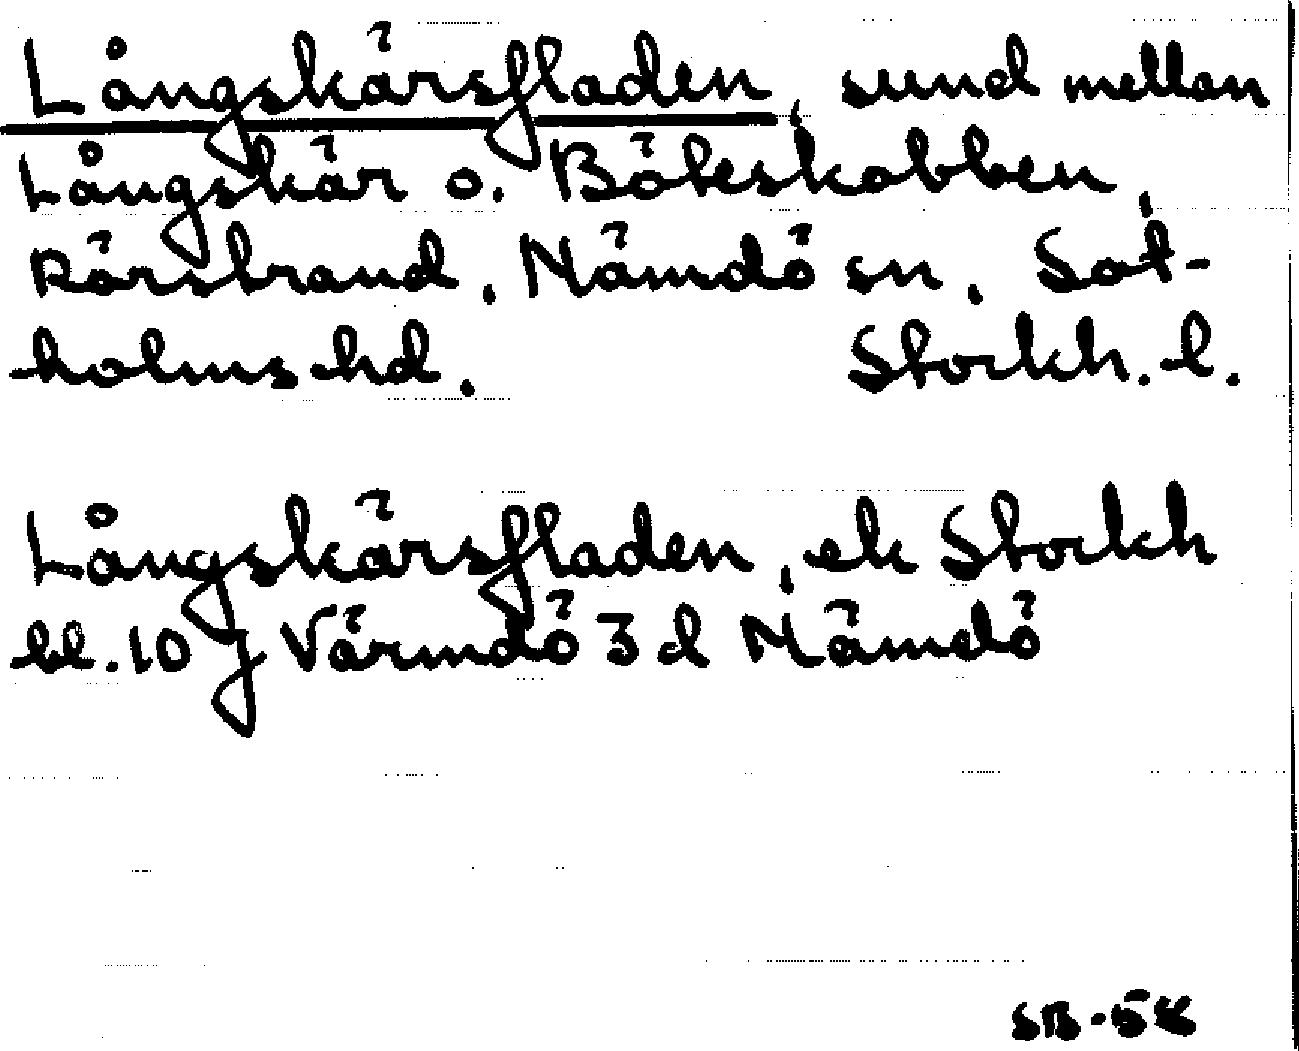 Långskärsfladen, sund mellan
Långskär o. Böteskobben,
Rörstrand, Nämdö sn, Sot-
holms hd. Stockh. l.
Långskärsfladen, ek Stockh
bl. 10 J Värmdö 3 d Nämdö
SB-58